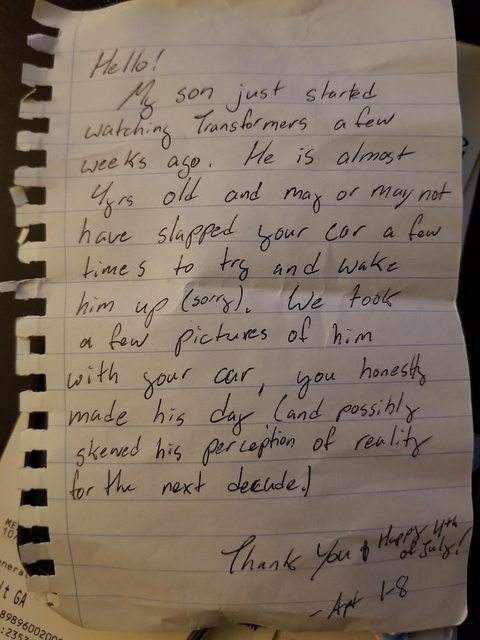 Hello!
My son just started
watching Transformers a few
weeks ago. He is almost
4yrs old and may or may not
have slapped your car a few
times to try and wake
him up (sorry). We took
a few pictures of him
with your car, you honestly
made his day (and possibly
skewed his perception of reality
for the next decade.)
Thank you & Happy 4th
of July!
- Apt 1-8
lt GA